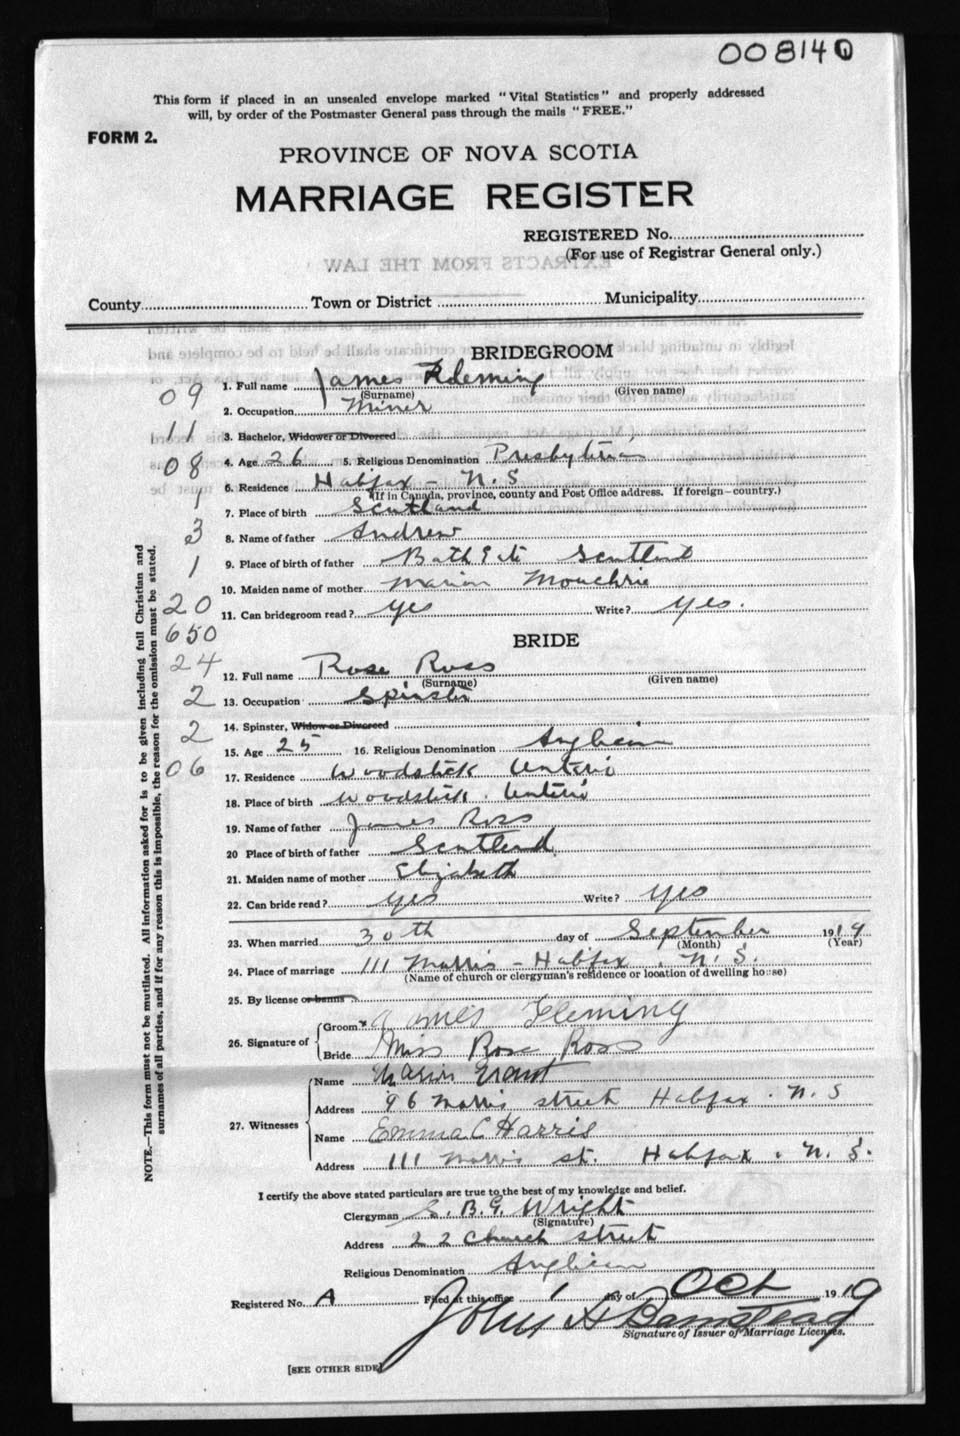 00814
This form if placed in an unsealed envelope marked "Vital Statistics" and properly addressed
will, by order of the Postmaster General pass through the mails "FREE."
FORM 2.
PROVINCE OF NOVA SCOTIA
MARRIAGE REGISTER
REGISTERED No.
(For use of Registrar General only.)
EXTRACTS FROM THE LAW
County Town or District Municipality
BRIDEGROOM
1. Full name James Fleming
(Surname) (Given name)
09
2. Occupation Miner
11
3. Bachelor, Widower or Divorced
08
4. Age 26 5. Religious Denomination Presbyterian
6. Residence Halifax - N.S
(If in Canada, province, county and Post Office address. If foreign—country.)
1
7. Place of birth Scotland
3
8. Name of father Andrew
1
9. Place of birth of father Bathgate Scotland
10. Maiden name of mother Marion
20
11. Can bridegroom read? yes Write? yes.
650
BRIDE
24
12. Full name Rose Ross
(Surname) (Given name)
2
13. Occupation Spinster
2
14. Spinster, Widow or Divorced
15. Age 25 16. Religious Denomination Anglican
06
17. Residence Woodstock Ontario
18. Place of birth Woodstock. Ontario
19. Name of father James Ross
20 Place of birth of father Scotland
21. Maiden name of mother Elizabeth
22. Can bride read? yes Write? yes
23. When married 30th day of September 1919
(Month) (Year)
24. Place of marriage 111 Morris - Halifax. N.S.
(Name of church or clergyman's residence or location of dwelling house)
25. By license or banns
26. Signature of Groom James Fleming
Bride Miss Rose Ross
27. Witnesses Name Grant
Address 96 Morris street Halifax. N.S
Name Emma C Harris
Address 111 Morris st. Halifax. N.S.
I certify the above stated particulars are true to the best of my knowledge and belief.
Clergyman S.B.G. Wright
(Signature)
Address 22 Church street
Religious Denomination Anglican
Registered No. A Filed at this office 1 day of Oct 1919
John A Bamstead
Signature of Issuer of Marriage Licenses.
[SEE OTHER SIDE]
NOTE.—This form must not be mutilated. All information asked for is to be given including full Christian and
surnames of all parties, and if for any reason this is impossible, the reason for the omission must be stated.